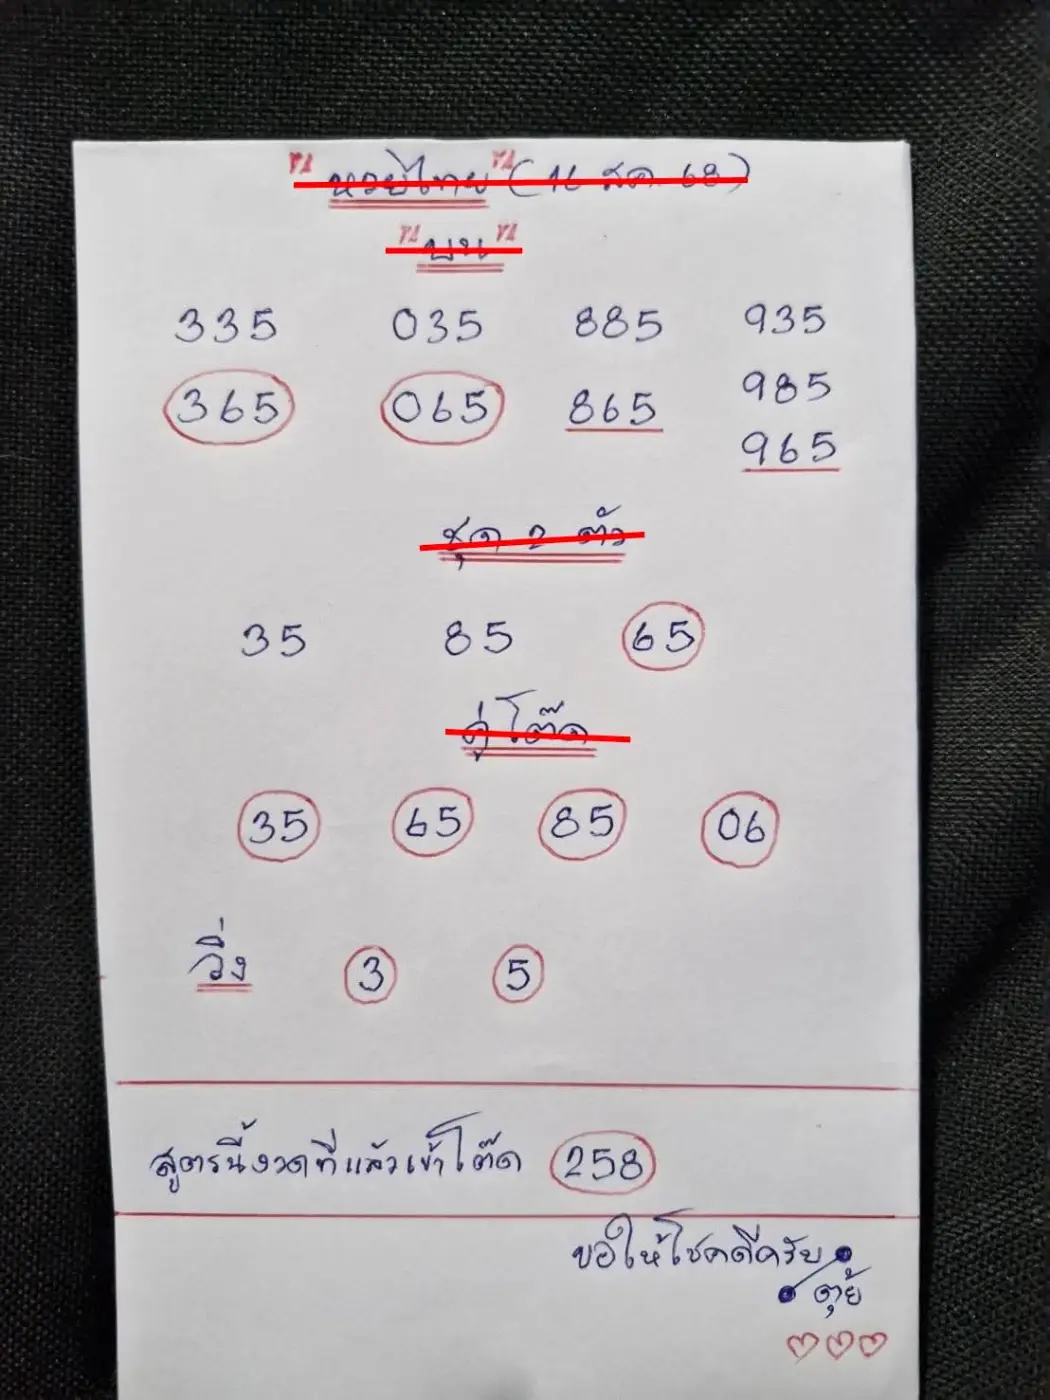 หวยไทย (16 สค 68)
บน
335 035 885 935
365 065 865 985
965
ชุด 2 ตัว
35 85 65
คู่โต๊ด
35 65 85 06
วิ่ง 3 5
สูตรนี้งวดที่แล้วเข้าโต๊ด 258
ขอให้โชคดีครับ
ตุ้ย